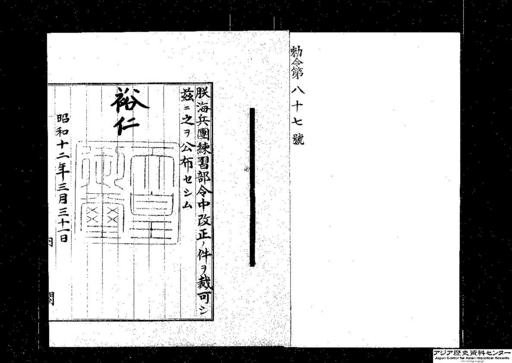 勅令第八十七號
朕海兵團練習部令中改正ノ件ヲ裁可シ
茲ニ之ヲ公布セシム
裕仁
天皇御璽
昭和十二年三月三十一日
内閣
アジア歴史資料センター
Japan Center for Asian Historical Records